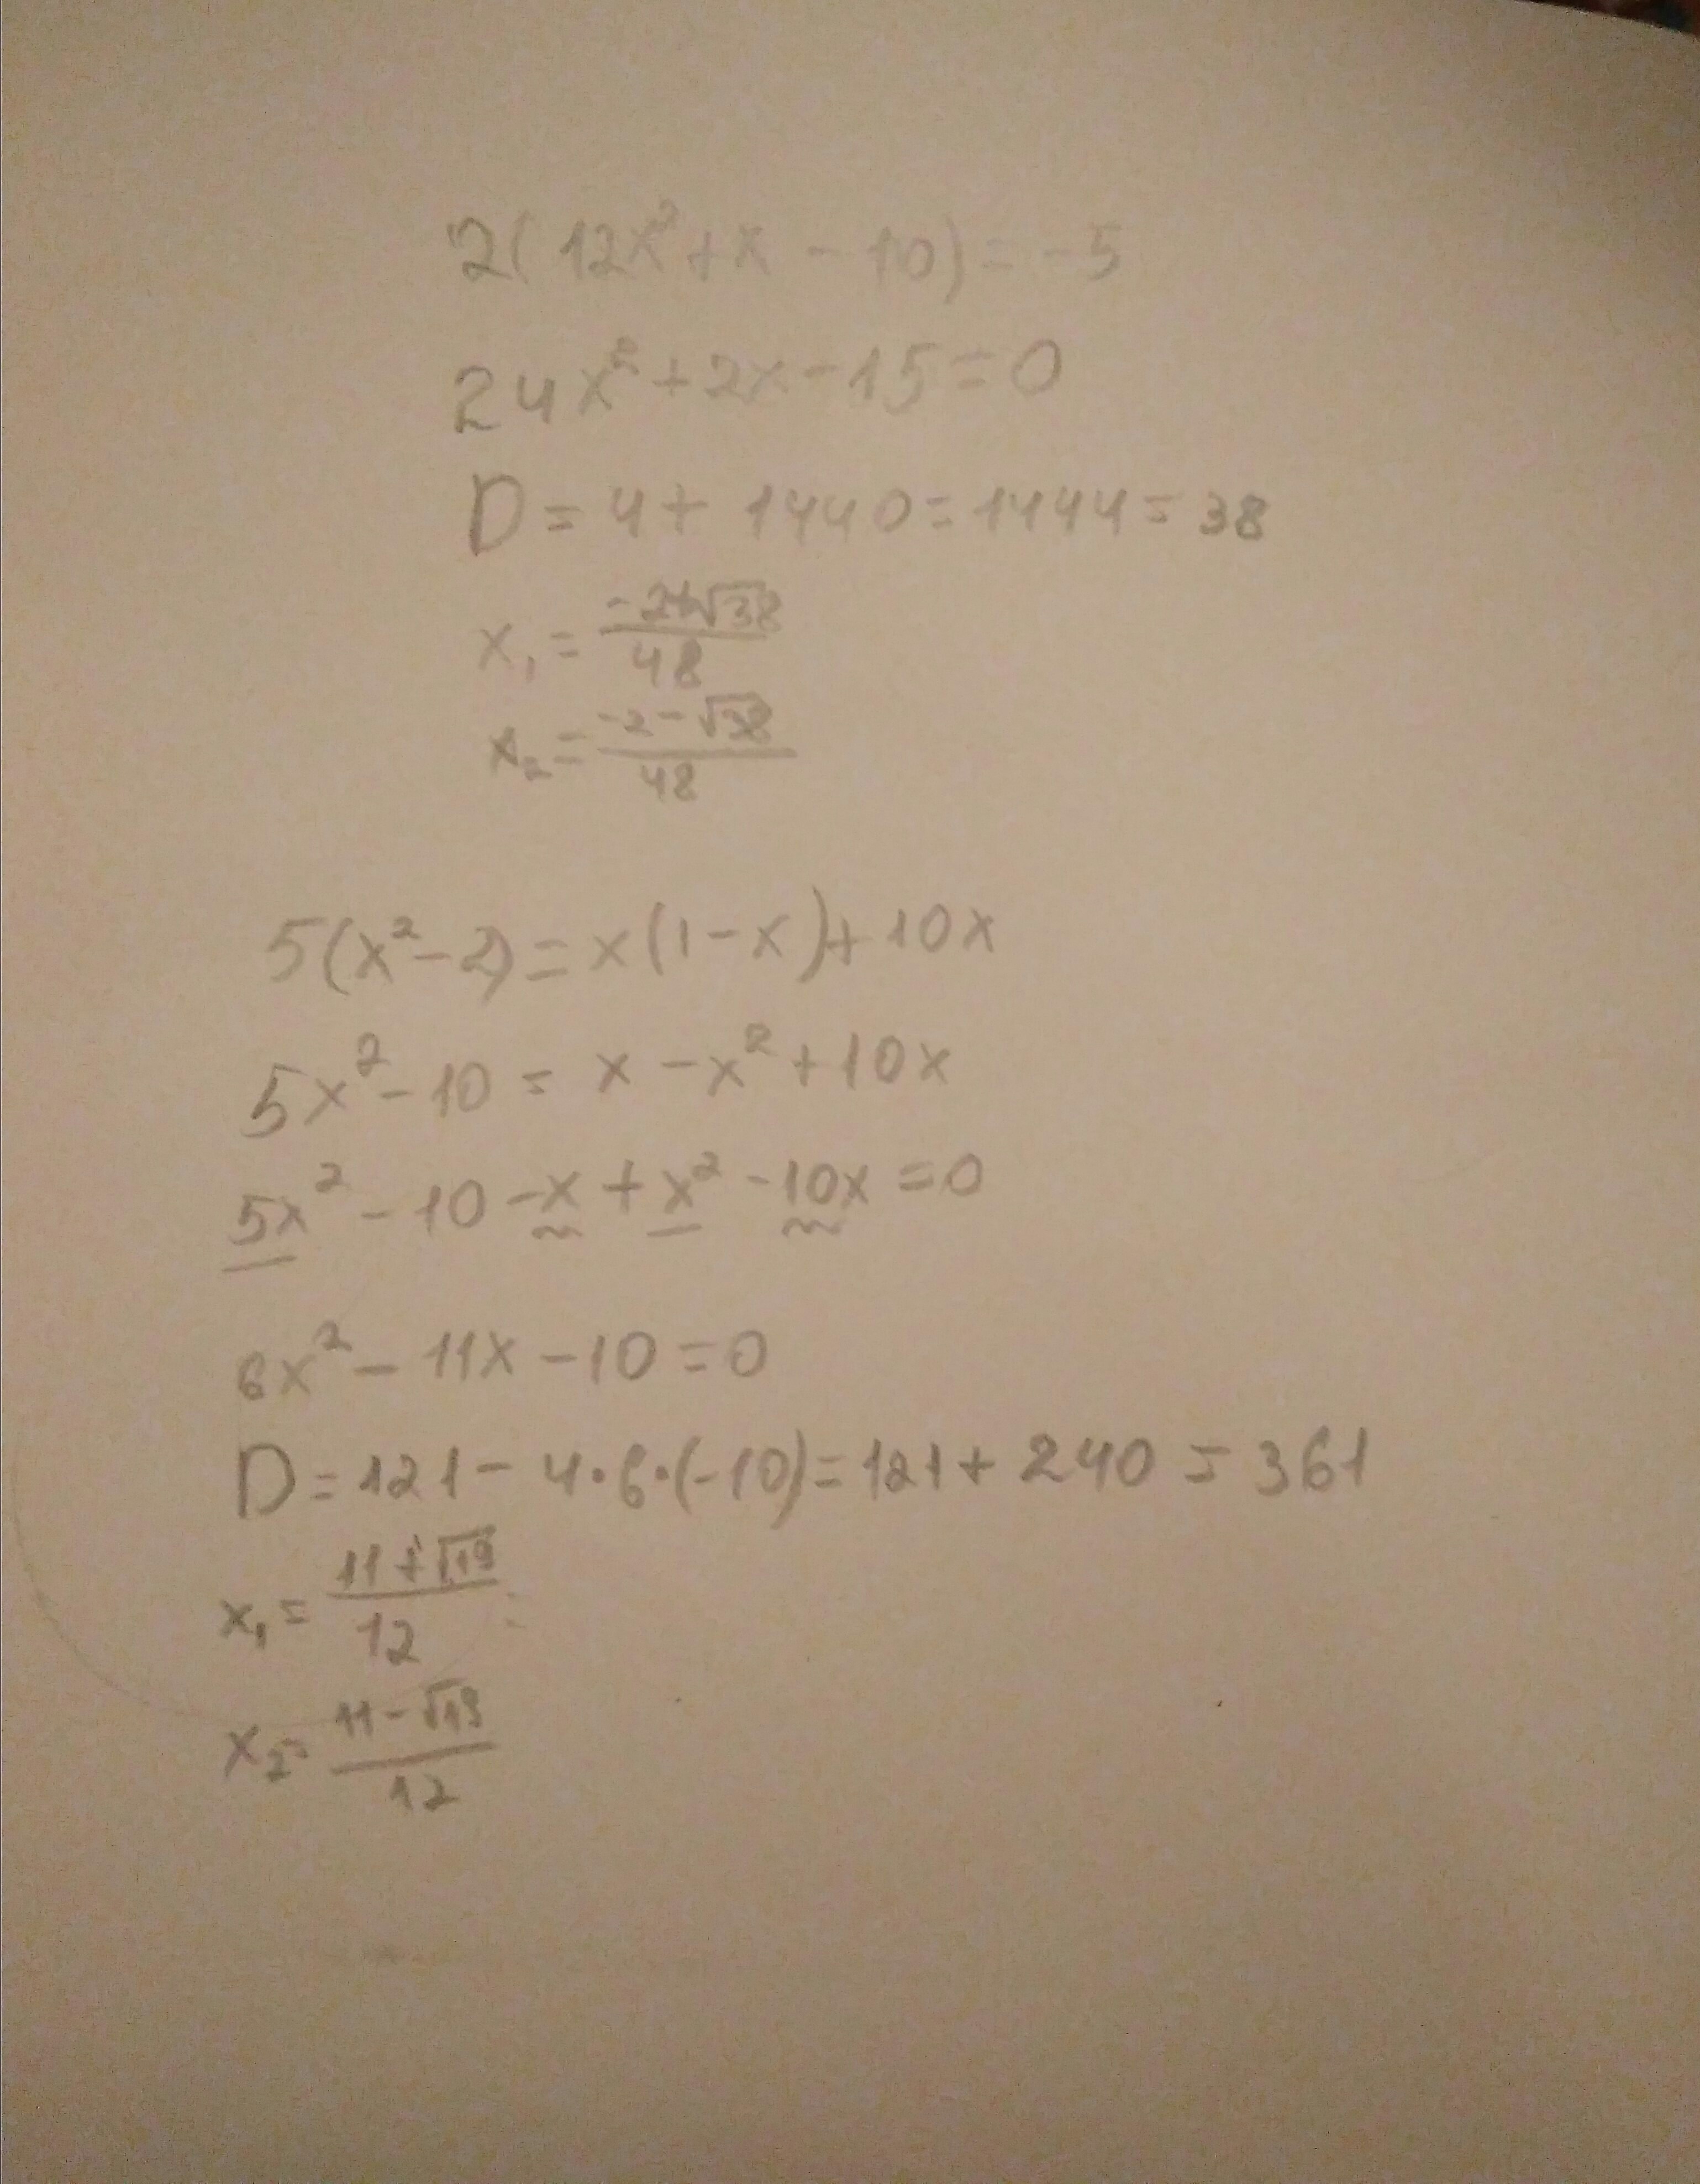 2(12x²+x-10)=-5
24x²+2x-15=0
D=4+1440=1444=38
x₁=(-2+√38)/48
x₂=(-2-√38)/48
5(x²-2)=x(1-x)+10x
5x²-10=x-x²+10x
5x²-10-x+x²-10x=0
6x²-11x-10=0
D=121-4·6·(-10)=121+240=361
x₁=(11+√19)/12=
x₂=(11-√19)/12